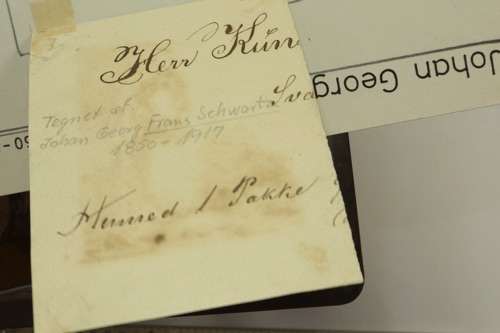 Herr Kün
Tegnet af
Johan Georg Frans Schwartz
1850 - 1917
Sva
Hermed 1 Pakke
Johan Georg